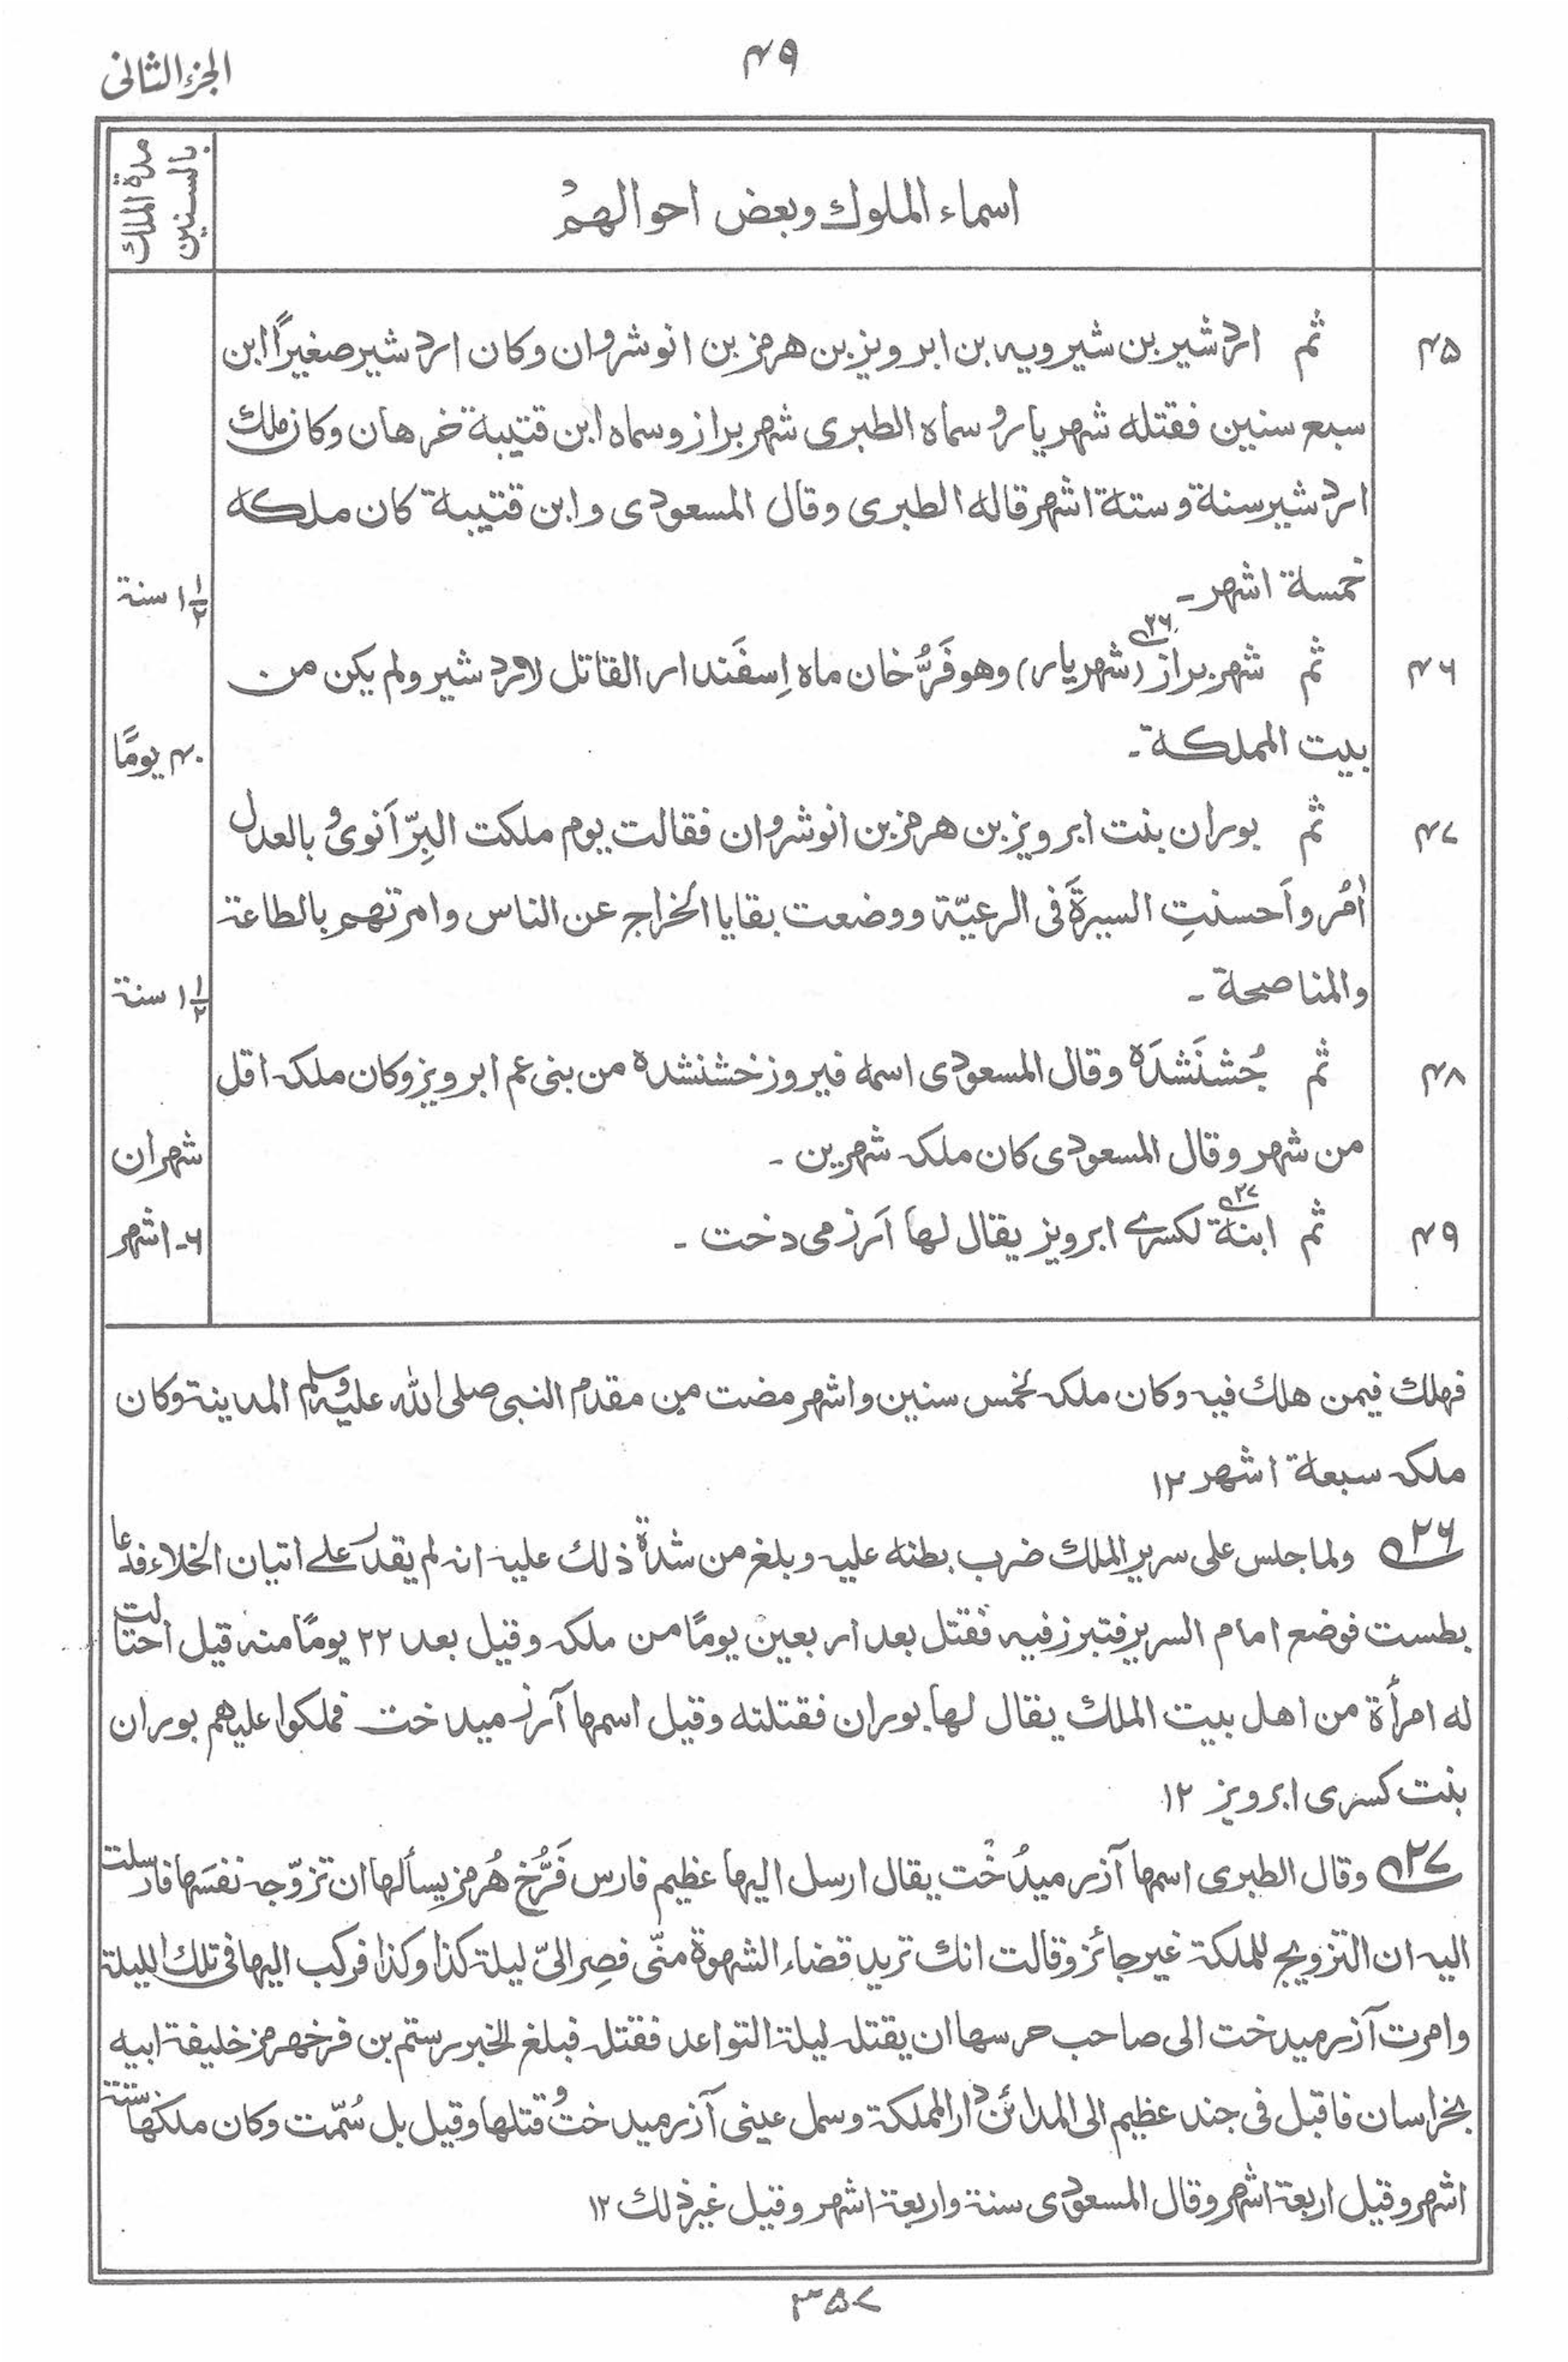 ۴۹
الجزء الثانی
اسماء الملوك وبعض احوالهم
مدة الملك بالسنین
۴۵ ثم اردشیر بن شیرویه بن ابرویز بن هرمز بن انوشروان وکان اردشیر صغیرًا ابن
سبع سنین فقتله شهریار وسماه الطبری شهربراز وسماه ابن قتیبة خرهان وکان ملك
اردشیر سنة وستة اشهر قاله الطبری وقال المسعودی وابن قتیبة کان ملکه
خمسة اشهر ـ ۱ ۱/۲ سنة
۴۶ ثم شهربراز (شهریار) ۲۶ وهو فَرُّخان ماه اِسفَندار القاتل لاردشیر ولم یکن من
بیت المملکة ـ ۴۰ یومًا
۴۷ ثم بوران بنت ابرویز بن هرمز بن انوشروان فقالت یوم ملکت البِرّ اَنوی و بالعدل
اٰمُر واَحسنتِ السیرةَ فی الرعیّة ووضعت بقایا الخراج عن الناس وامرتهم بالطاعة
والمناصحة ـ ۱ ۱/۲ سنة
۴۸ ثم جُشنَشدَه وقال المسعودی اسمه فیروز خشنشده من بنی عم ابرویز وکان ملکه اقل
من شهر وقال المسعودی کان ملکه شهرین ـ شهران
۴۹ ثم ابنة ۲۷ لکسرے ابرویز یقال لها اَرزمی دخت ـ ۶ـ اشهر
فهلك فیمن هلك فیه وکان ملکه لخمس سنین واشهر مضت من مقدم النبی صلی الله علیه وسلم المدینة وکان
ملکه سبعة اشهر ۱۲
۲۶ ولما جلس علی سریر الملك ضرب بطنه علیه وبلغ من شدة ذلك علیه انه لم یقدر علے اتیان الخلاء فدعا
بطست فوضع امام السریر فتبرز فیه فقتل بعد اربعین یومًا من ملکه وقیل بعد ۲۲ یومًا منه قیل احتالت
له امرأة من اهل بیت الملك یقال لها بوران فقتلته وقیل اسمها آرزمیدخت فملکوا علیهم بوران
بنت کسری ابرویز ۱۲
۲۷ وقال الطبری اسمها آذرمیدُخْت یقال ارسل الیها عظیم فارس فَرُّخ هُرمز یسألها ان تزوّجه نفسَها فارسلت
الیه ان التزویج للملکة غیر جائز وقالت انك ترید قضاء الشهوة منّی فصِر الیّ لیلة کذا وکذا فرکب الیها فی تلك اللیلة
وامرت آذرمیدخت الی صاحب حرسها ان یقتله لیلة التواعد فقتله فبلغ الخبر رستم بن فرخهرمز خلیفة ابیه
بخراسان فاقبل فی جند عظیم الی المدائن دار المملکة وسمل عینی آذرمیدخت وقتلها وقیل بل سُمّت وکان ملکها ستة
اشهر وقیل اربعة اشهر وقال المسعودی سنة واربعة اشهر وقیل غیر ذلك ۱۲
۳۵۷